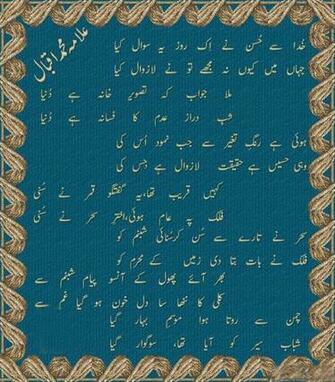 علامہ محمد اقبال
خدا سے حُسن نے اِک روز یہ سوال کیا
جہاں میں کیوں نہ مجھے تو نے لازوال کیا
ملا جواب کہ تصویر خانہ ہے دُنیا
شبِ دراز عدم کا فسانہ ہے دُنیا
ہوئی ہے رنگِ تغیر سے جب نمود اُس کی
وہی حسیں ہے حقیقت لازوال ہے جس کی
کہیں قریب تھا، یہ گفتگو قمر نے سُنی
فلک پہ عام ہوئی، اختر سحر نے سُنی
سحر نے تارے سے سُن کر سُنائی شبنم کو
فلک نے بات بتا دی زمیں کے محرم کو
بھر آئے پھول کے آنسو پیامِ شبنم سے
کلی کا ننھا سا دل خون ہو گیا غم سے
چمن سے روتا ہوا موسمِ بہار گیا
شباب سیر کو آیا تھا، سوگوار گیا